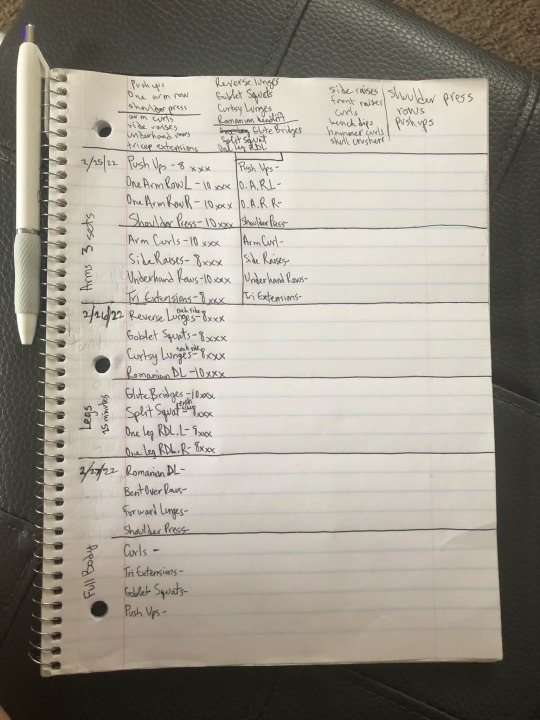 Push ups
One arm row
shoulder press
arm curls
side raises
underhand rows
tricep extensions
Reverse lunges
Goblet Squats
Curtsy Lunges
Romanian
Glute Bridges
Split Squat
leg RDL
side raises
front raises
curls
bench dips
hammer curls
skull crushers
shoulder press
rows
pushups
2/25/22
Arms 3 sets
Push Ups - 8 xxx
One Arm Row L - 10 xxx
One Arm Row R - 10 xxx
Shoulder Press - 10 xxx
Arm Curls - 10 xxx
Side Raises - 8 xxx
Underhand Rows - 10 xxx
Tri Extensions - 8 xxx
Push Ups -
O.A.R.L -
O.A.R.R -
Shoulder Press -
Arm Curl -
Side Raises -
Underhand Rows -
Tri Extensions -
2/26/22
Legs
25 minutes
Reverse Lunges each side - 8 xxx
Goblet Squats - 8 xxx
Curtsy Lunges each side - 8 xxx
Romanian DL - 10 xxx
Glute Bridges - 10 xxx
Split Squat each - xxx
One Leg RDL.L - 8 xxx
One Leg RDL.R - 8 xxx
2/27/22
Full Body
Romanian DL -
Bent Over Rows -
Forward Lunges -
Shoulder Press -
Curls -
Tri Extensions -
Goblet Squats -
Push Ups -